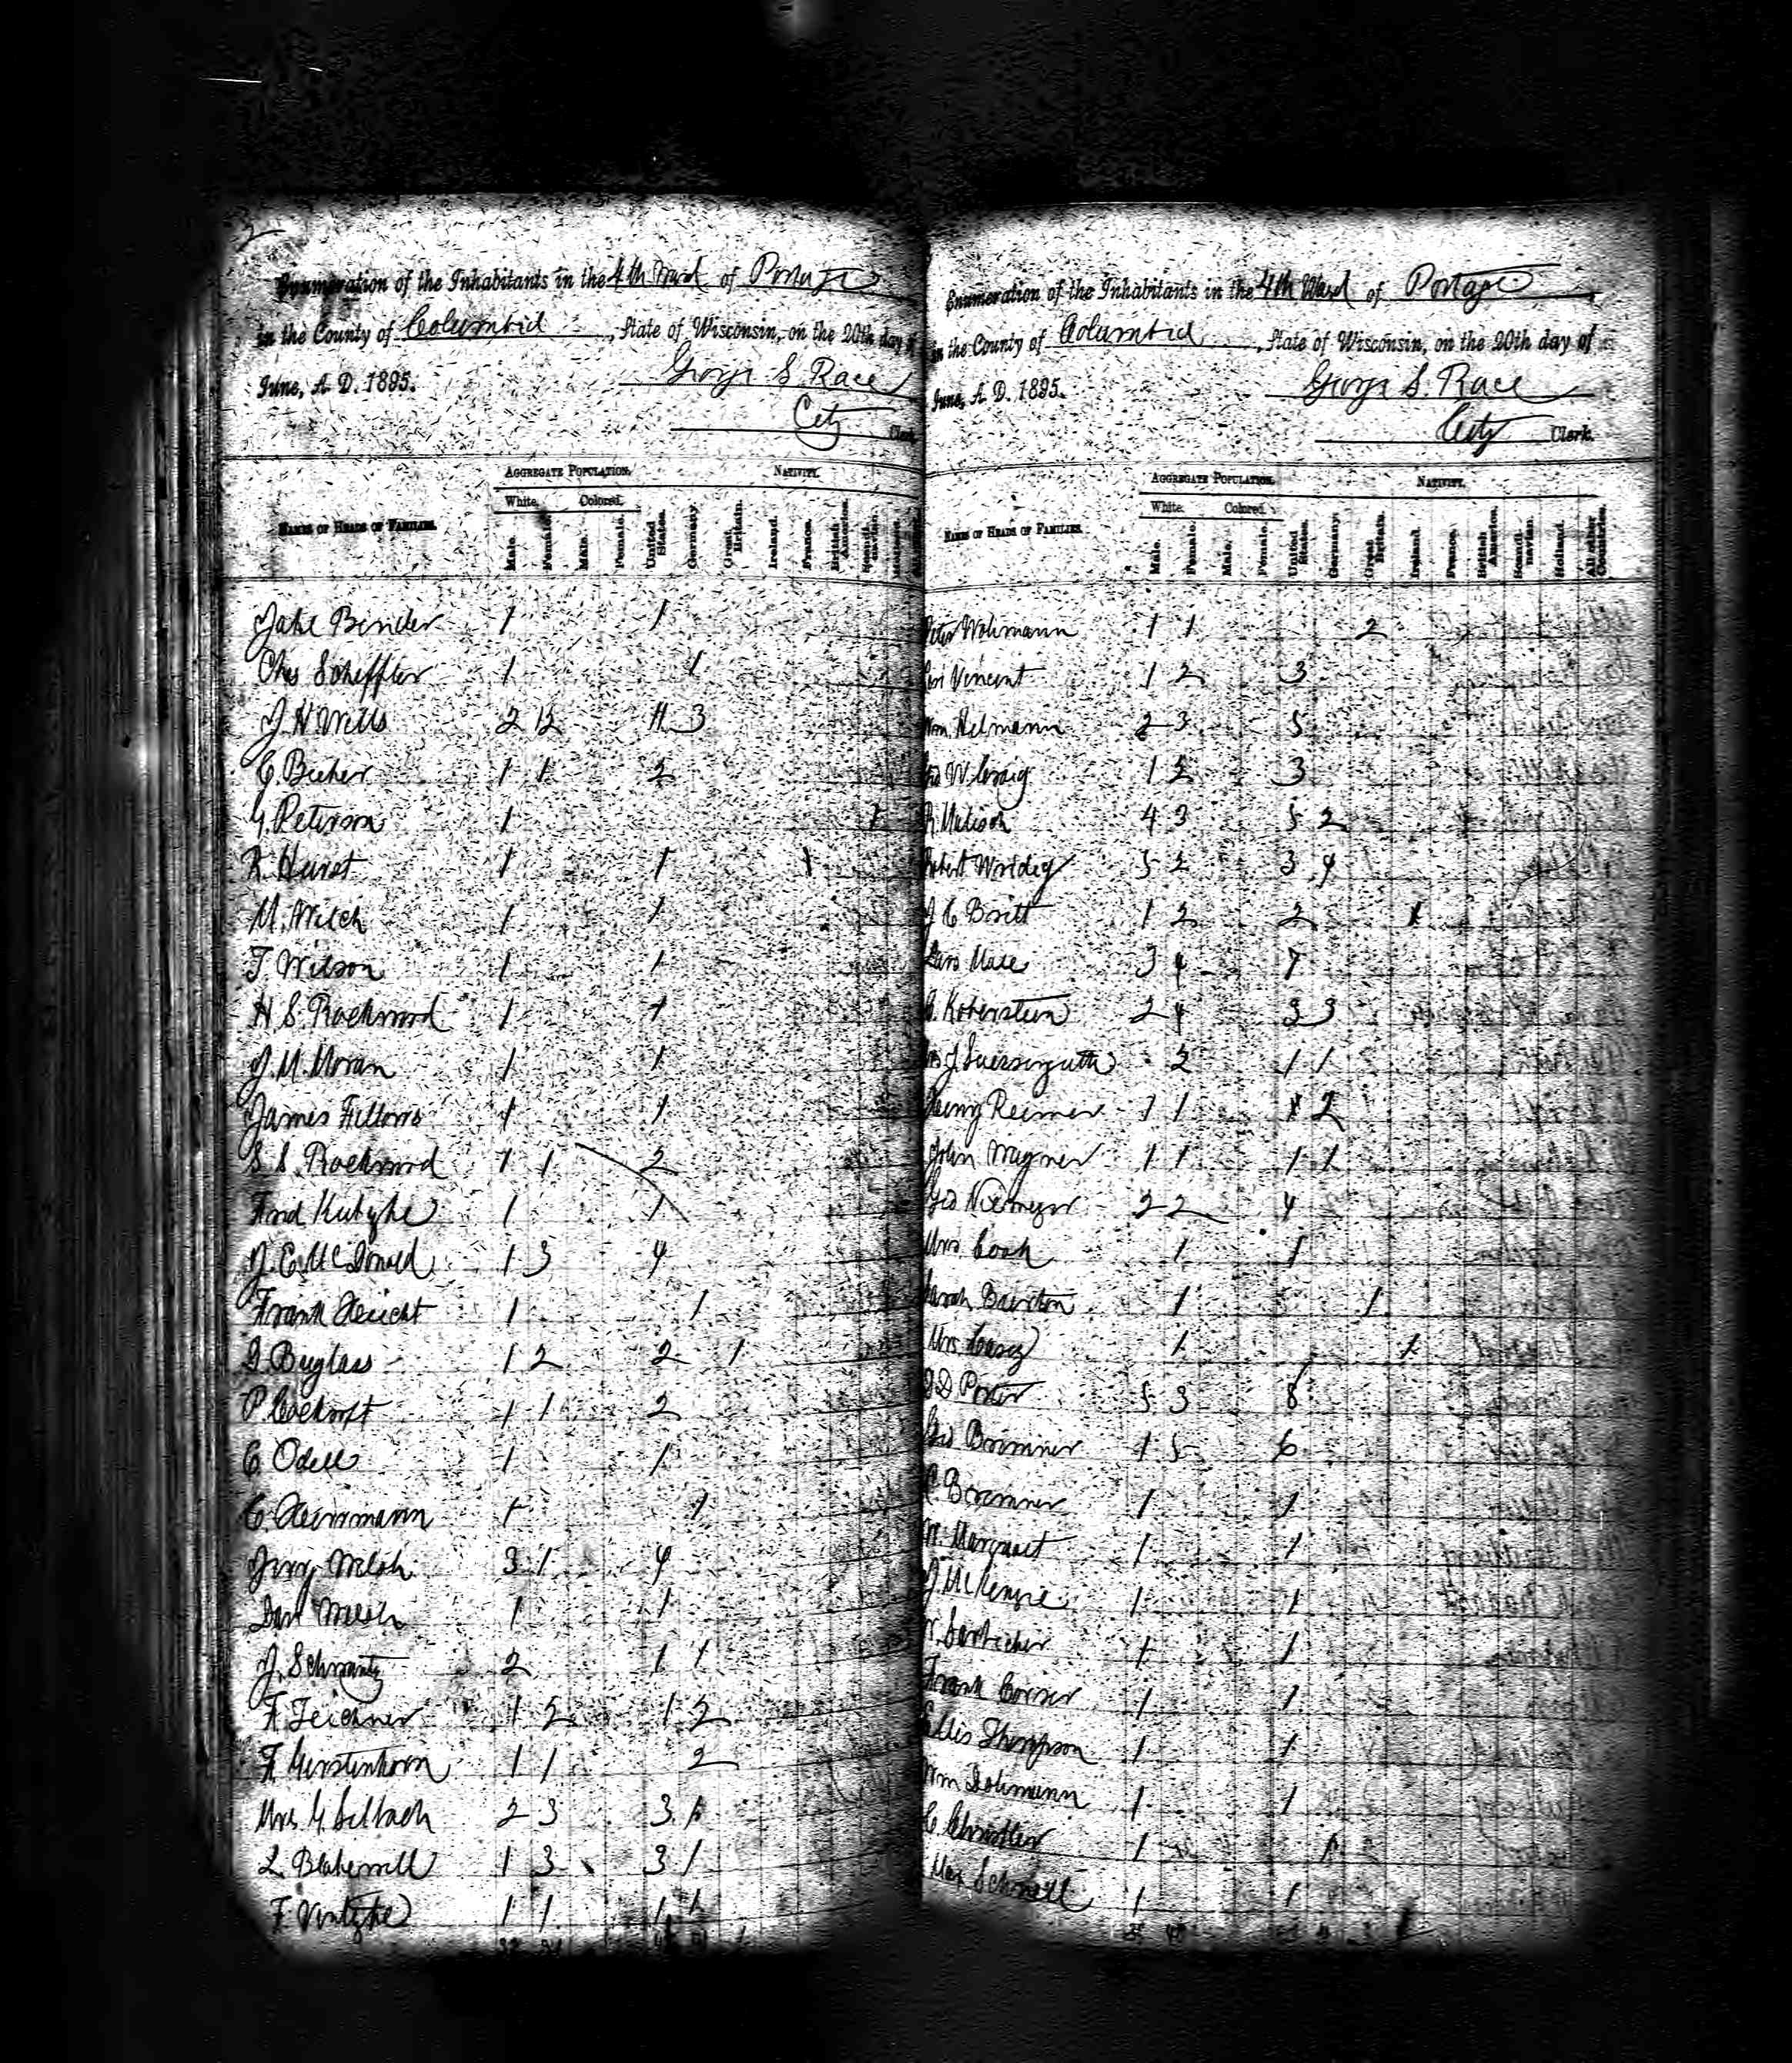 2
Enumeration of the Inhabitants in the 4th Ward of Portage
in the County of Columbia, State of Wisconsin, on the 20th day of
June, A. D. 1895.
George S. Race
City Clerk
AGGREGATE POPULATION. NATIVITY.
White. Colored.
NAMES OF HEADS OF FAMILIES. Male. Female. Male. Female. United States. Germany. Great Britain. Ireland. France. British America. Scandinavian.
Jake Bender 1 1
Chas Scheffler 1 1
J. H. Wells 2 12 11 3
C. Becker 1 1 2
G. Peterson 1 1
R. Hurst 1 1 1
M. Welch 1 1
T. Wilson 1 1
H S. Rockwood 1 1
J. M. Moran 1 1
James Fellows 1 1
S. S. Rockwood 1 1 2
Fred 1 1
J. E. McDonald 1 3 4
Frank 1 1
Buglass 1 2 2 1
P. 1 1 2
C. Odell 1 1
C. Herrmann 1 1
Jerry Welch 3 1 4
Dan Welch 1 1
J. Schwantz 2 1 1
F. Teichner 1 2 1 2
F. Gerstenkorn 1 1 2
Mrs. G. Selbach 2 3 3
L. Blakewell 1 3 3 1
F. 1 1 1 1
Enumeration of the Inhabitants in the 4th Ward of Portage
in the County of Columbia, State of Wisconsin, on the 20th day of
June, A. D. 1895.
George S. Race
City Clerk.
AGGREGATE POPULATION. NATIVITY.
White. Colored.
NAMES OF HEADS OF FAMILIES. Male. Female. Male. Female. United States. Germany. Great Britain. Ireland. France. British America. Scandinavian. Holland. All other Countries.
Peter Wohmann 1 1 2
Vincent 1 2 3
Wm. Helmann 2 3 5
Geo W. Craig 1 2 3
R. 4 3 5 2
Robert 5 2 3 4
J C Britt 1 2 2 1
Mace 3 4 7
Koberstein 2 4 3 3
Mrs J. 2 1 1
Henry Reimer 1 1 2
John Wagner 1 1 1 1
Geo Niemeyer 2 2 4
Mrs. Cook 1 1
Sarah 1 1
Mrs. Casey 1 1
D Porter 5 3 8
Geo Brimner 1 5 6
C. Brimner 1 1
W. Marquart 1 1
J. McKenzie 1 1
1 1
Frank 1 1
Ellis Thompson 1 1
Wm Dohmann 1 1
C. Christler 1 1
Max Schnell 1 1